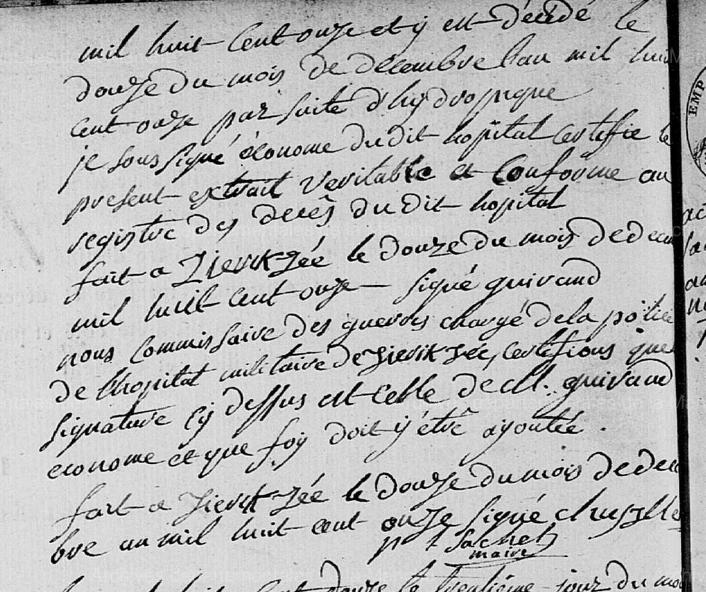 mil huit cent onze et y est décédé le
douze du mois de décembre l'an mil huit
cent onze par suite d'hydropique
je soussigné économe du dit hopital certifie le
présent extrait veritable et conforme au
registre des decès du dit hopital
fait a Zierikzée le douze du mois de decem
mil huit cent onze — signé guiraud
nous Commissaire des guerres chargé de la police
de l'hopital militaire de Zierikzée, certifions que
signature cy dessus est celle de M. guiraud
econome et que foy doit y être ajoutée.
fait a Zierikzée le douze du mois de decem
bre an mil huit cent onze signé
Sachet
maire
cent douze le trentième jour du mois
EMP